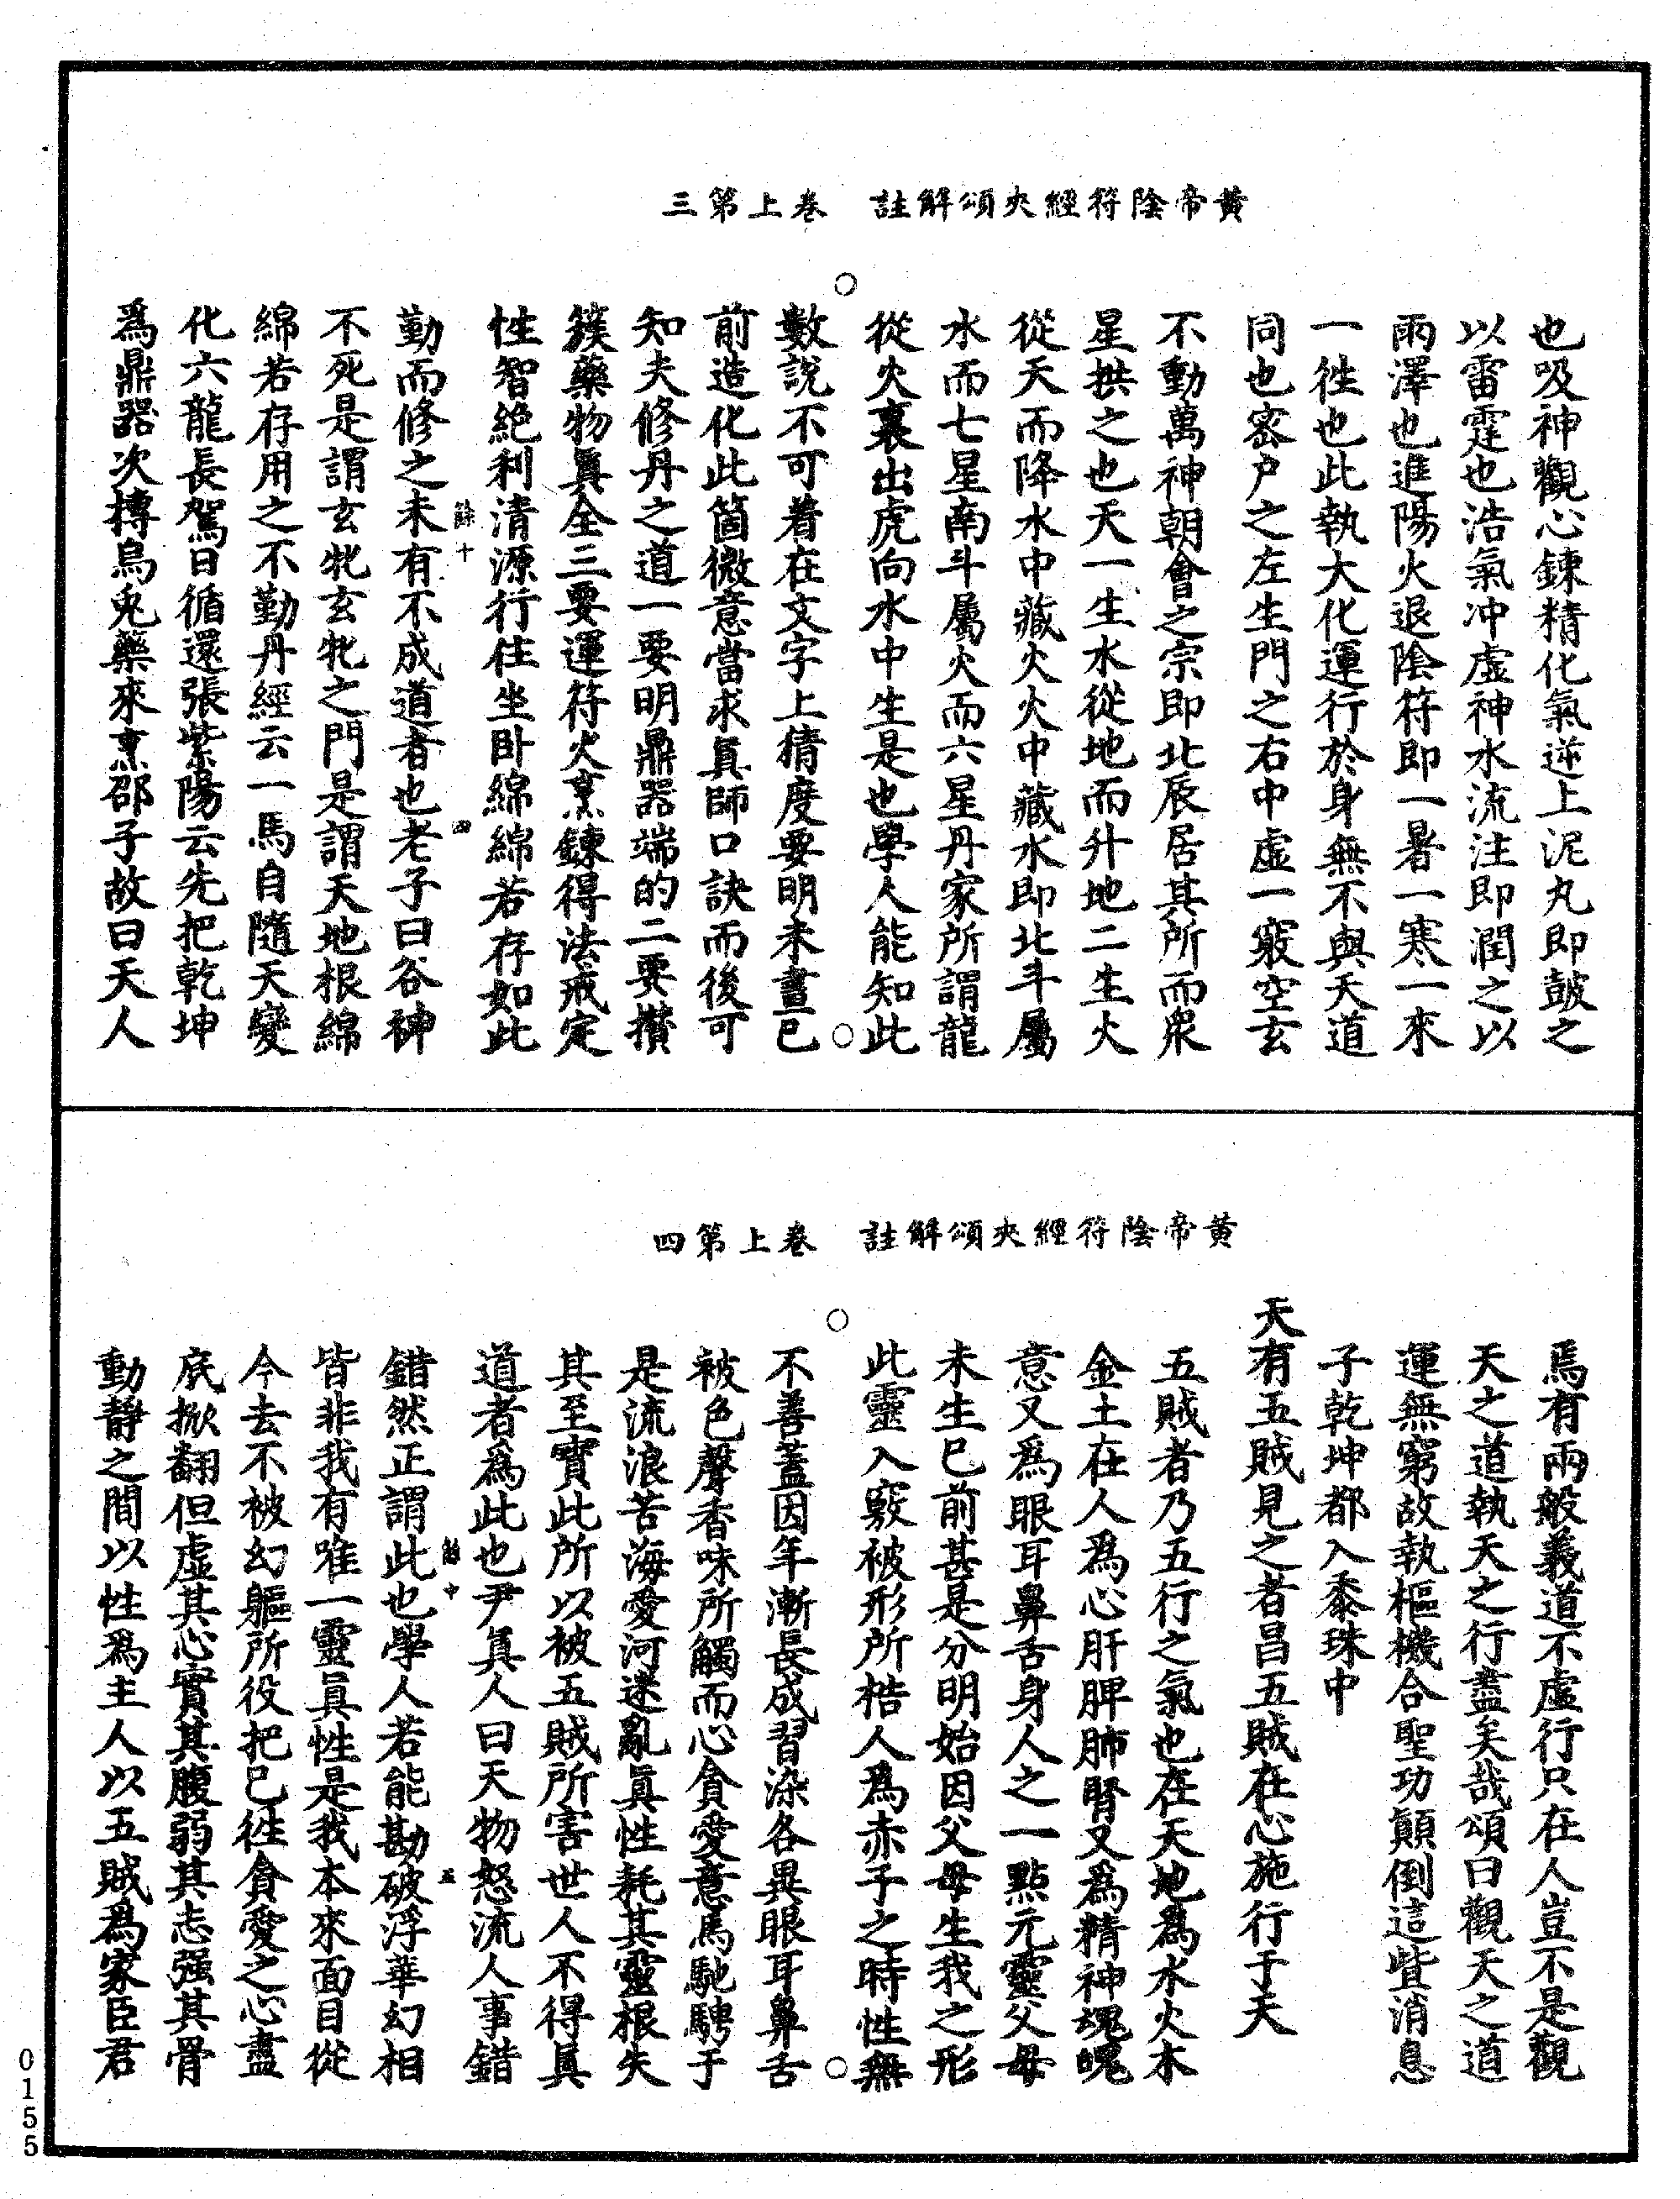 黃帝陰符經夾頌解註　卷上第三
也吸神觀心鍊精化氣逆上泥丸即鼓之
以雷霆也浩氣冲虛神水流注即潤之以
雨澤也進陽火退陰符即一暑一寒一來
一徃也此執大化運行於身無不與天道
同也密户之左生門之右中虛一竅空玄
不動萬神朝會之宗即北辰居其所而衆
星拱之也天一生水從地而升地二生火
從天而降水中藏火火中藏水即北斗屬
水而七星南斗屬火而六星丹家所謂龍
從火裏出虎向水中生是也學人能知此
數說不可着在文字上猜度要明未畫已
前造化此箇微意當求眞師口訣而後可
知夫修丹之道一要明鼎器端的二要攢
簇藥物眞全三要運符火烹鍊得法戒定
性智絶利清源行住坐卧綿綿若存如此
勤而修之未有不成道者也老子曰谷神
不死是謂玄牝玄牝之門是謂天地根綿
綿若存用之不勤丹經云一馬自隨天變
化六龍長駕日循還張紫陽云先把乾坤
爲鼎器次摶烏兎藥來烹邵子故曰天人
黃帝陰符經夾頌解註　卷上第四
焉有兩般義道不虛行只在人豈不是觀
天之道執天之行盡矣哉頌曰觀天之道
運無窮故執樞機合聖功顚倒這些消息
子乾坤都入黍珠中
天有五賊見之者昌五賊在心施行于天
五賊者乃五行之氣也在天地爲水火木
金土在人爲心肝脾肺腎又爲精神魂魄
意又爲眼耳鼻舌身人之一點元靈父母
未生已前甚是分明始因父母生我之形
此靈入竅被形所梏人爲赤子之時性無
不善蓋因年漸長成習染各異眼耳鼻舌
被色聲香味所觸而心貪愛意馬馳騁于
是流浪苦海愛河迷亂眞性耗其靈根失
其至寶此所以被五賊所害世人不得眞
道者爲此也尹眞人曰天物怒流人事錯
錯然正謂此也學人若能勘破浮華幻相
皆非我有唯一靈眞性是我本來面目從
今去不被幻軀所役把已徃貪愛之心盡
底掀翻但虛其心實其腹弱其志强其骨
動靜之間以性爲主人以五賊爲家臣君
0155